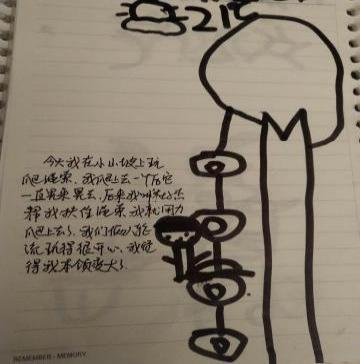 21℃
今天我在小山坡上玩
爬绳索，我爬上去一下后它
一直晃来晃去，后来我叫
帮我扶住绳索，我就用力
爬上去了，我们俩
流玩得很开心，我觉
得我本领变大了
REMEMBER · MEMORY